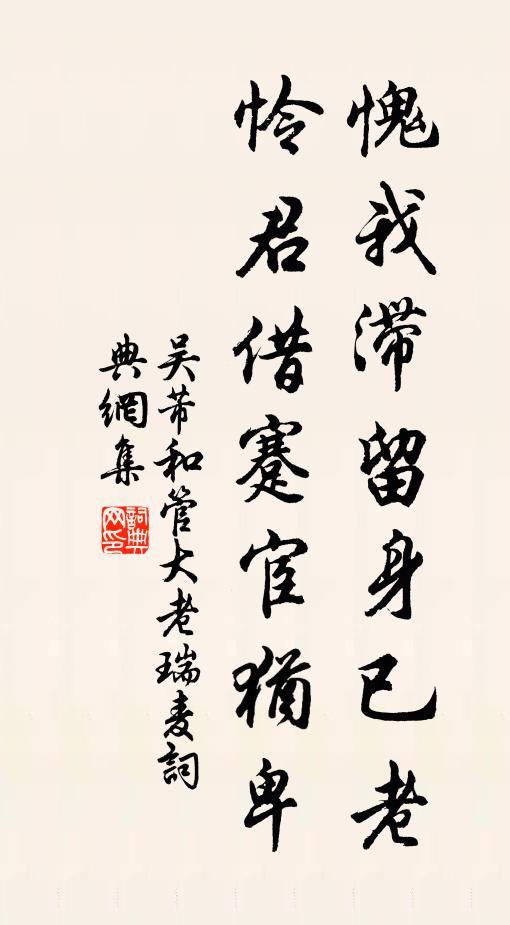 愧我滯留身已老
怜君借蹇宦猶卑
吴芾和管大老瑞麦詞
典網集
詞典网印